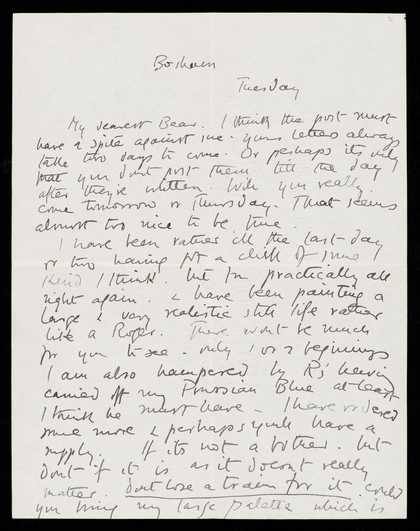 Bosham
Tuesday
My dearest Bear. I think the post must
have a spite against me - your letters always
take two days to come. Or perhaps its only
that you dont post them till the day
after they're written. Will you really
come tomorrow or Thursday. That seems
almost too nice to be true.
I have been rather ill the last day
or two having got a chill of some
kind I think. but Im practically all
right again. & have been painting a
large & very realistic still life rather
like a Roger. There wont be much
for you to see - only 1 or 2 beginnings
I am also hampered by R's having
carried off my Prussian Blue at least
I think he must have - I have ordered
some more & perhaps you'll have a
supply. If its not a bother. but
dont if it is as it doesnt really
matter. dont lose a train for it could
you bring my large palette which is